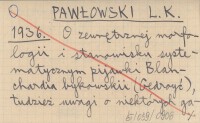 PAWŁOWSKI L. K.
1936. O zewnętrznej morfo-
logii i stanowisku syste-
matycznym pijawki Blan-
chardia bykowskii (Gedroyć),
tudzież uwagi o niektórych ga-